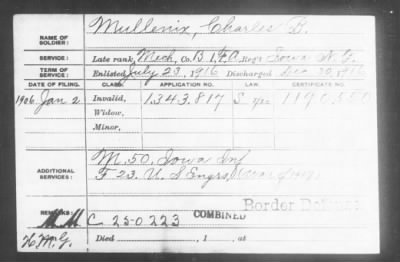 NAME OF SOLDIER: Mullenix, Charles B.
SERVICE: Late rank, Mech, Co. B 1, F.A. Reg't Iowa N. G.
TERM OF SERVICE: Enlisted July 23, 1916 Discharged Dec 30, 1916
DATE OF FILING. CLASS. APPLICATION NO. LAW. CERTIFICATE NO.
1906 Jan 2 Invalid, 1343817 S
Widow,
Minor,
ADDITIONAL SERVICES: M. 50, Iowa Inf
F 23. U. S. Engrs,
Border
REMARKS: C 25-0 223 COMBINED
Died , 1 , at